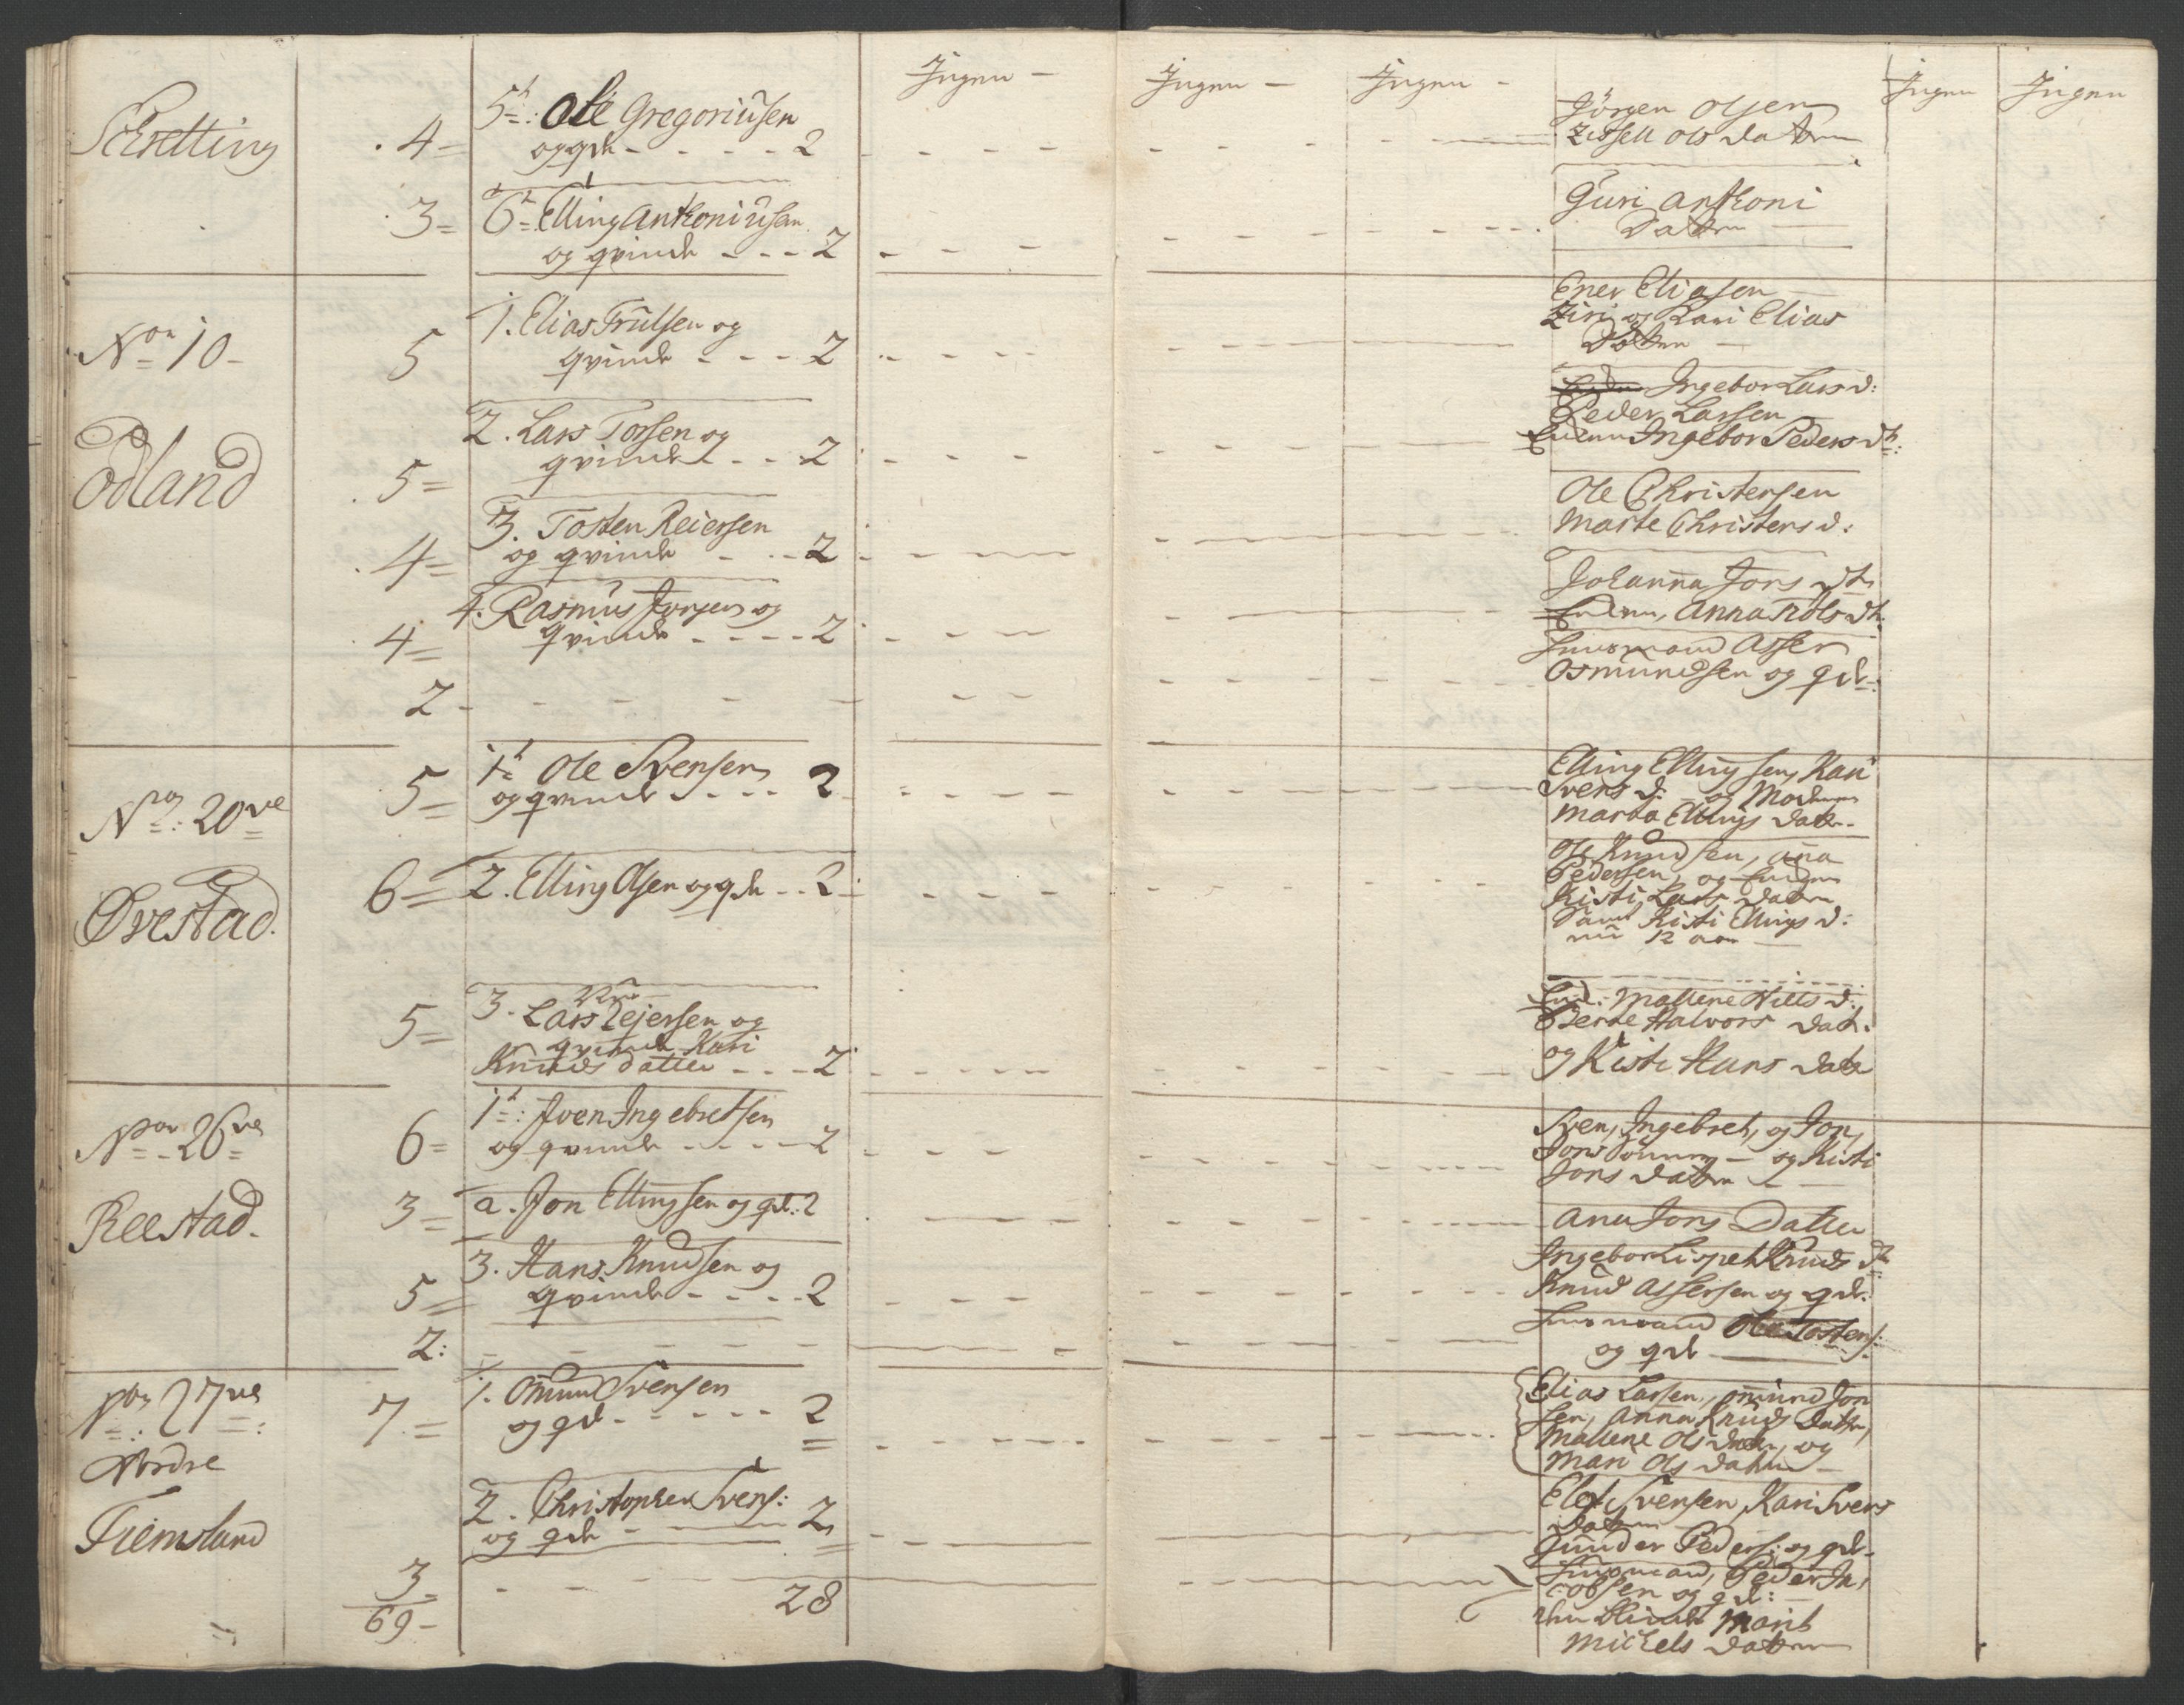 Ingen - Ingen - Ingen - Ingen Ingen
Schretting
4 = 5t: Ole Gregoriusen
og qde - - - - 2
Jörgen Olsen
Zissell Ols Datter
3 = 6t Elling Anthoniusen
og qvinde - - - 2
Guri Anthoni
Datter
No 10 -
Ödland
5 1. Elias Trulsen og
qvinde - - - 2
Ener Eliasen
Ziri og Kari Elias
Dötter
5 = 2. Lars Torsen og
qvinde - - - 2
Ingebor Lars d:
Peder Larsen
Ingebor Peders dt:
4 = 3. Tosten Reiersen
og qvinde - - - 2
Ole Christensen
Marte Christens d:
4 = 4. Rasmus Jonsen og
qvinde - - - - 2
Johanna Jons dtr
Anna Nols dtr
2 - - - - -
Huusmand Asser
Osmundsen og qde:
No: 20ve
Øvestad.
5 = 1t Ole Svensen
og qvinde - - - 2
Elling Ellingsen, Kari
Svens d: og Moderen
Marta Ellings datter
6 = 2. Elling Olsen og qde - - 2
Ole Knudsen, Ana
Pedersen, og
Kisti Lars datter
Samt Kisti Ellings d:
nu 12 aar
5 = 3. Lars Rejersen og
qvinde Kari
Knuds datter - - - 2
Mallene Nills d:
Berte Halvors datr.
og Kisti Hans datr
No 26ve
Reestad.
6 = 1t: Jven Ingebretsen
og qvinde - - - - 2
Sven, Ingebret, og Jon,
Jons Sönner - og Kisti
Jons datter
3 = 2. Jon Ellingsen og qde: 2
Ane Jons Datter
5 = 3. Hans Knudsen og
qvinde - - - - 2
Ingebor Lispet Knuds dtr
Knud Assersen og qde:
2: - - - - -
Huusmand Ole Tostens:
og qde
No: 27ve
Nordre
Tiemsland
7 = 1. Omund Svensen
og qde - - - - - 2
Elias Larsen, Omund Jon
sen, Anna Knuds datter,
Mallene Ols datter, og
Mari Ols datter
2. Christopher Svens:
og qde - - 2
Elef Svensen, Kari Svens
datter
Gunder Peders: og qde.
3 = - - -
Huusmand, Peder Ja
cobsen og qde:
Marit
Michels datter
69 - 28